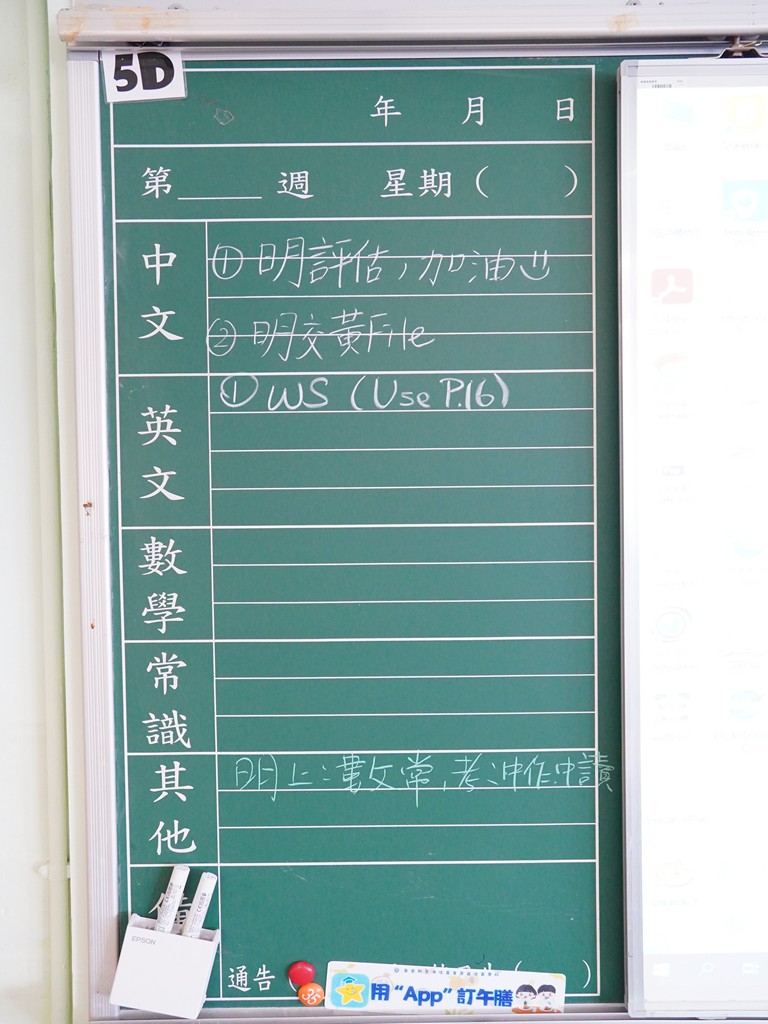 5D
年 月 日
第 週 星期( )
中文
① 明評估,加油
② 明交黃File
英文
① WS (Use P.16)
數學
常識
其他
明上:數文常,考:中作.中讀
EPSON
通告( )
用“App”訂午膳